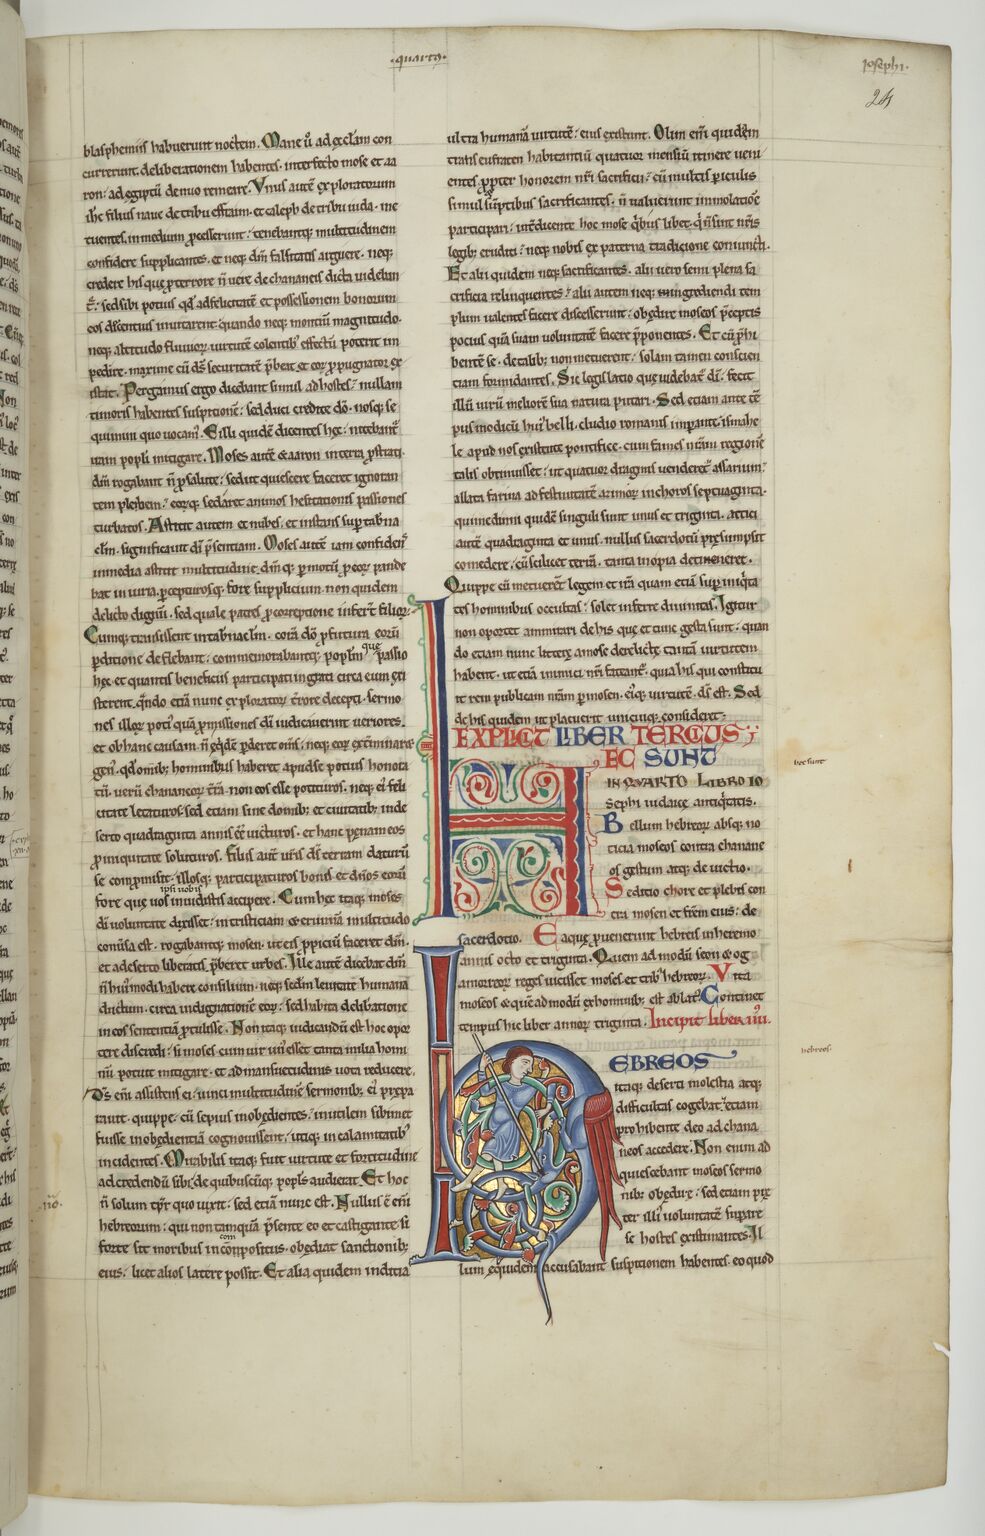 ·quartus·
iosephi·
24
blasphemiis habuerunt noctem. Mane ů ad ęcclam con
currerunt. deliberationem habentes. interfecto mose et aa
ron: ad egiptū denuo remeare. Vnus autē exploratorum
ihc filius naue de tribu effraim. et caleph de tribu iuda. me
tuentes. in medium processerunt: tenebantq; multitudinem
confidere supplicantes. et neq; dm̄ falsitatis arguere. neq;
credere his que p̱ terrore n̄ vere de chananeis dicta videban
t̄: sed sibi potius qd̄ ad felicitatē et possessionem bonorum
eos
inuitarent: quando neq; montiū magnitudo.
neq; altitudo fluuior̄. virtutē colentib; effectū poterit im
pedire. maxime cū ds̄ securitatē p̄beat et eor̄ p̱pugnator ex
istat. Pergamus ergo dicebant simul ad hostes: nullam
timoris habentes suspitionē: sed duci credite dō. nosq; se
quimini quo uocam̄. Et illi quidē dicentes hęc: nitebant̄
iram popli mitigare. Moses autē & aaron in terra p̱strati.
dm̄ rogabant n̄ p̱ salute: sed ut quiescere faceret ignoran
tem plebem: eorq; sedaret animos hesitationis passiones
turbatos. Astitit autem et nubes. et instans sup̱ tab̄na
clm̄. significauit di p̄sentiam. Moses autē iam confidens
in media astitit multitudine. dm̄ q; p̱ motū p̱ eor̄ pande
bat iniuria. p̱cepturosq; fore supplicium. non quidem
delicto dignū. sed quale patres p̱ correptione infert̄ filiis:
Cumq; transissent in tab̄nacłm. corā dō p̱ futura eorū
p̱ditione deflebant: commemorabantq; poplm̄ que passio
hęc. et quantis beneficiis participati ingrati circa eum exi
sterent. qn̄do etiā nunc exploratoꝝ terrore decepti. sermo
nes illoꝝ poti' quā p̱missiones dī iudicauerint veriores.
et ob hanc causam. n̄ qdē p̱deret om̄s: neq; eoꝝ exterminaret
gen'. qd̄ omib; hominibus haberet apud se potius honora
tū. verū chananeoꝝ trā. non eos esse potituros. neq; ei' feli
citate letaturos. sed etiam sine domib; et ciuitatib; inde
serto quadraginta annis eē victuros. et hanc p̱enam eos
p̱ iniquitate soluturos. Filiis aut̄ vr̄is ds̄ terram daturū
se cōp̱misit. illosq; participaturos bonis. et dn̄os eorū
ipsi uobis
fore que vos inuidistis accipere. Cum hęc itaq; moses
di voluntate dixisset: in tristiciam & erumnā multitudo
conūsa est. rogabantq; mosen. ut eis p̱piciū faceret dm̄.
et a deserto liberatis p̄beret urbes. Ille autē dicebat dm̄
n̄ hui'modi habere consilium. neq; sedm leuitatē humanā
ductum. circa indignationē eoꝝ. sed habita delibatione
in eos sententiā p̱tulisse. Non itaq; iudicandū est hoc opor
tere discredi: si moses cum vir un' esset tanta milia homi
nū potuit mitigare. et ad mansuetudinis uota reducere.
Ds̄ em̄ assistens ei: vinci multitudinē sermonib; ei' prepa
rauit. quippe. cū sepius inobędientes: inutilem sibimet
fuisse inobędientiā cognouissent: utiq; in calamitatib'
incidentes. Mirabilis itaq; fuit virtute et fortitudine
ad credendū sibi: de quibuscūq; popl's audierat. Et hoc
n̄ solum tp̄r quo vixit: sed etiā nunc est. Nullus ē em̄
hebreorum: qui non tamquā p̄sente eo et castigante si
com
forte sit moribus incōpositus. obędiat sanctionib;
eius: licet alios latere possit. Et alia quidem inditia
ultra humanā virtutē: eius existunt. Olim em̄ quidem
trans eufraten habitantiū quatuor mensiū itinere veni
entes p̱pter honorem nr̄i sacrificii: cū multis p̱iculis
simul sūptibus sacrificantes. n̄ valuerunt immolatiōe
participari:
hoc mose qbus libet. q n̄ sint nr̄is
legib; eruditi: neq; nobis ex paterna tradicione coniuncti.
Et alii quidem neq; sacrificantes. alii uero semi plena sa
crificia relinquentes: alii autem neq; ingrediendi tem
plum valentes facere discesserunt: obędire moseos p̄ceptis
pocius quā suam voluntatē facere p̄ponentes. Et cū p̱hi
bent̄ se. de talib; non metuerent: solam tamen conscien
tiam formidantes. Sic legislacio que videbat̄ di. fecit
illū virū meliorē sua natura putari. Sed etiam ante tē
pus modicū hui' belli. claudio romanis imp̱ante. ismahe
le apud nos existente pontifice. cum fames nr̄am regionē
talis obtinuisset: ut quatuor dragmis venderet̄ assarium:
allata farina ad festiuitatē azimoꝝ in choros septuaginta.
qui medimni quidē singuli sunt unus et triginta. attici
autē quadraginta et unus. nullus sacerdotū presumpsit
comedere. cū scilicet terrā. tanta inopia detineret.
Quippe cū metuerēt legem et irā quam etiā sup̱ iniqta
tes hominibus occultas: solet inferre diuinitas. Igitur
non oportet ammirari de his que et tunc gesta sunt: quan
do etiam nunc litterę a mose derelictę tantā virtutem
habent. ut etiā inimici nr̄i fateant̄. quia his qui constitu
it rem publicam nr̄am p̱ mosen. eiq; virtutē. ds̄ est. Sed
de his quidem ut placuerit unicuiq; consideret:
EXPLICIT LIBER TERCIUS;
HEC SUNT
IN QVARTO LIBRO IO
sephi iudaicę antiqtatis.
Bellum hebreoꝝ absq; no
ticia moseos contra chanane
os gestum atq; deuictio.
Seditio chore et plebis con
tra mosen et fr̄em eius: de
sacerdotio. Eaque p̱uenerunt hebreis in heremo
annis octo et triginta. Quem ad modū seon & og
amorreoꝝ reges vicisset moses. et trib' hebreoꝝ. Vita
moseos & quē ad modū ex hominib; est ablat'. Continet
tempus hic liber annoꝝ triginta. Incipit liber iiii.
HEBREOS
itaq; deserti molestia atq;
difficultas cogebat. etiam
prohibente deo ad chana
neos accedere. Non enim ad
quiescebant moseos sermo
nib; obędire: sed etiam pre
ter illi' voluntatē supare
se hostes existimantes. Il
lum equidem accusabant suspitionem habentes. eo quod
hec sunt
hebreos.